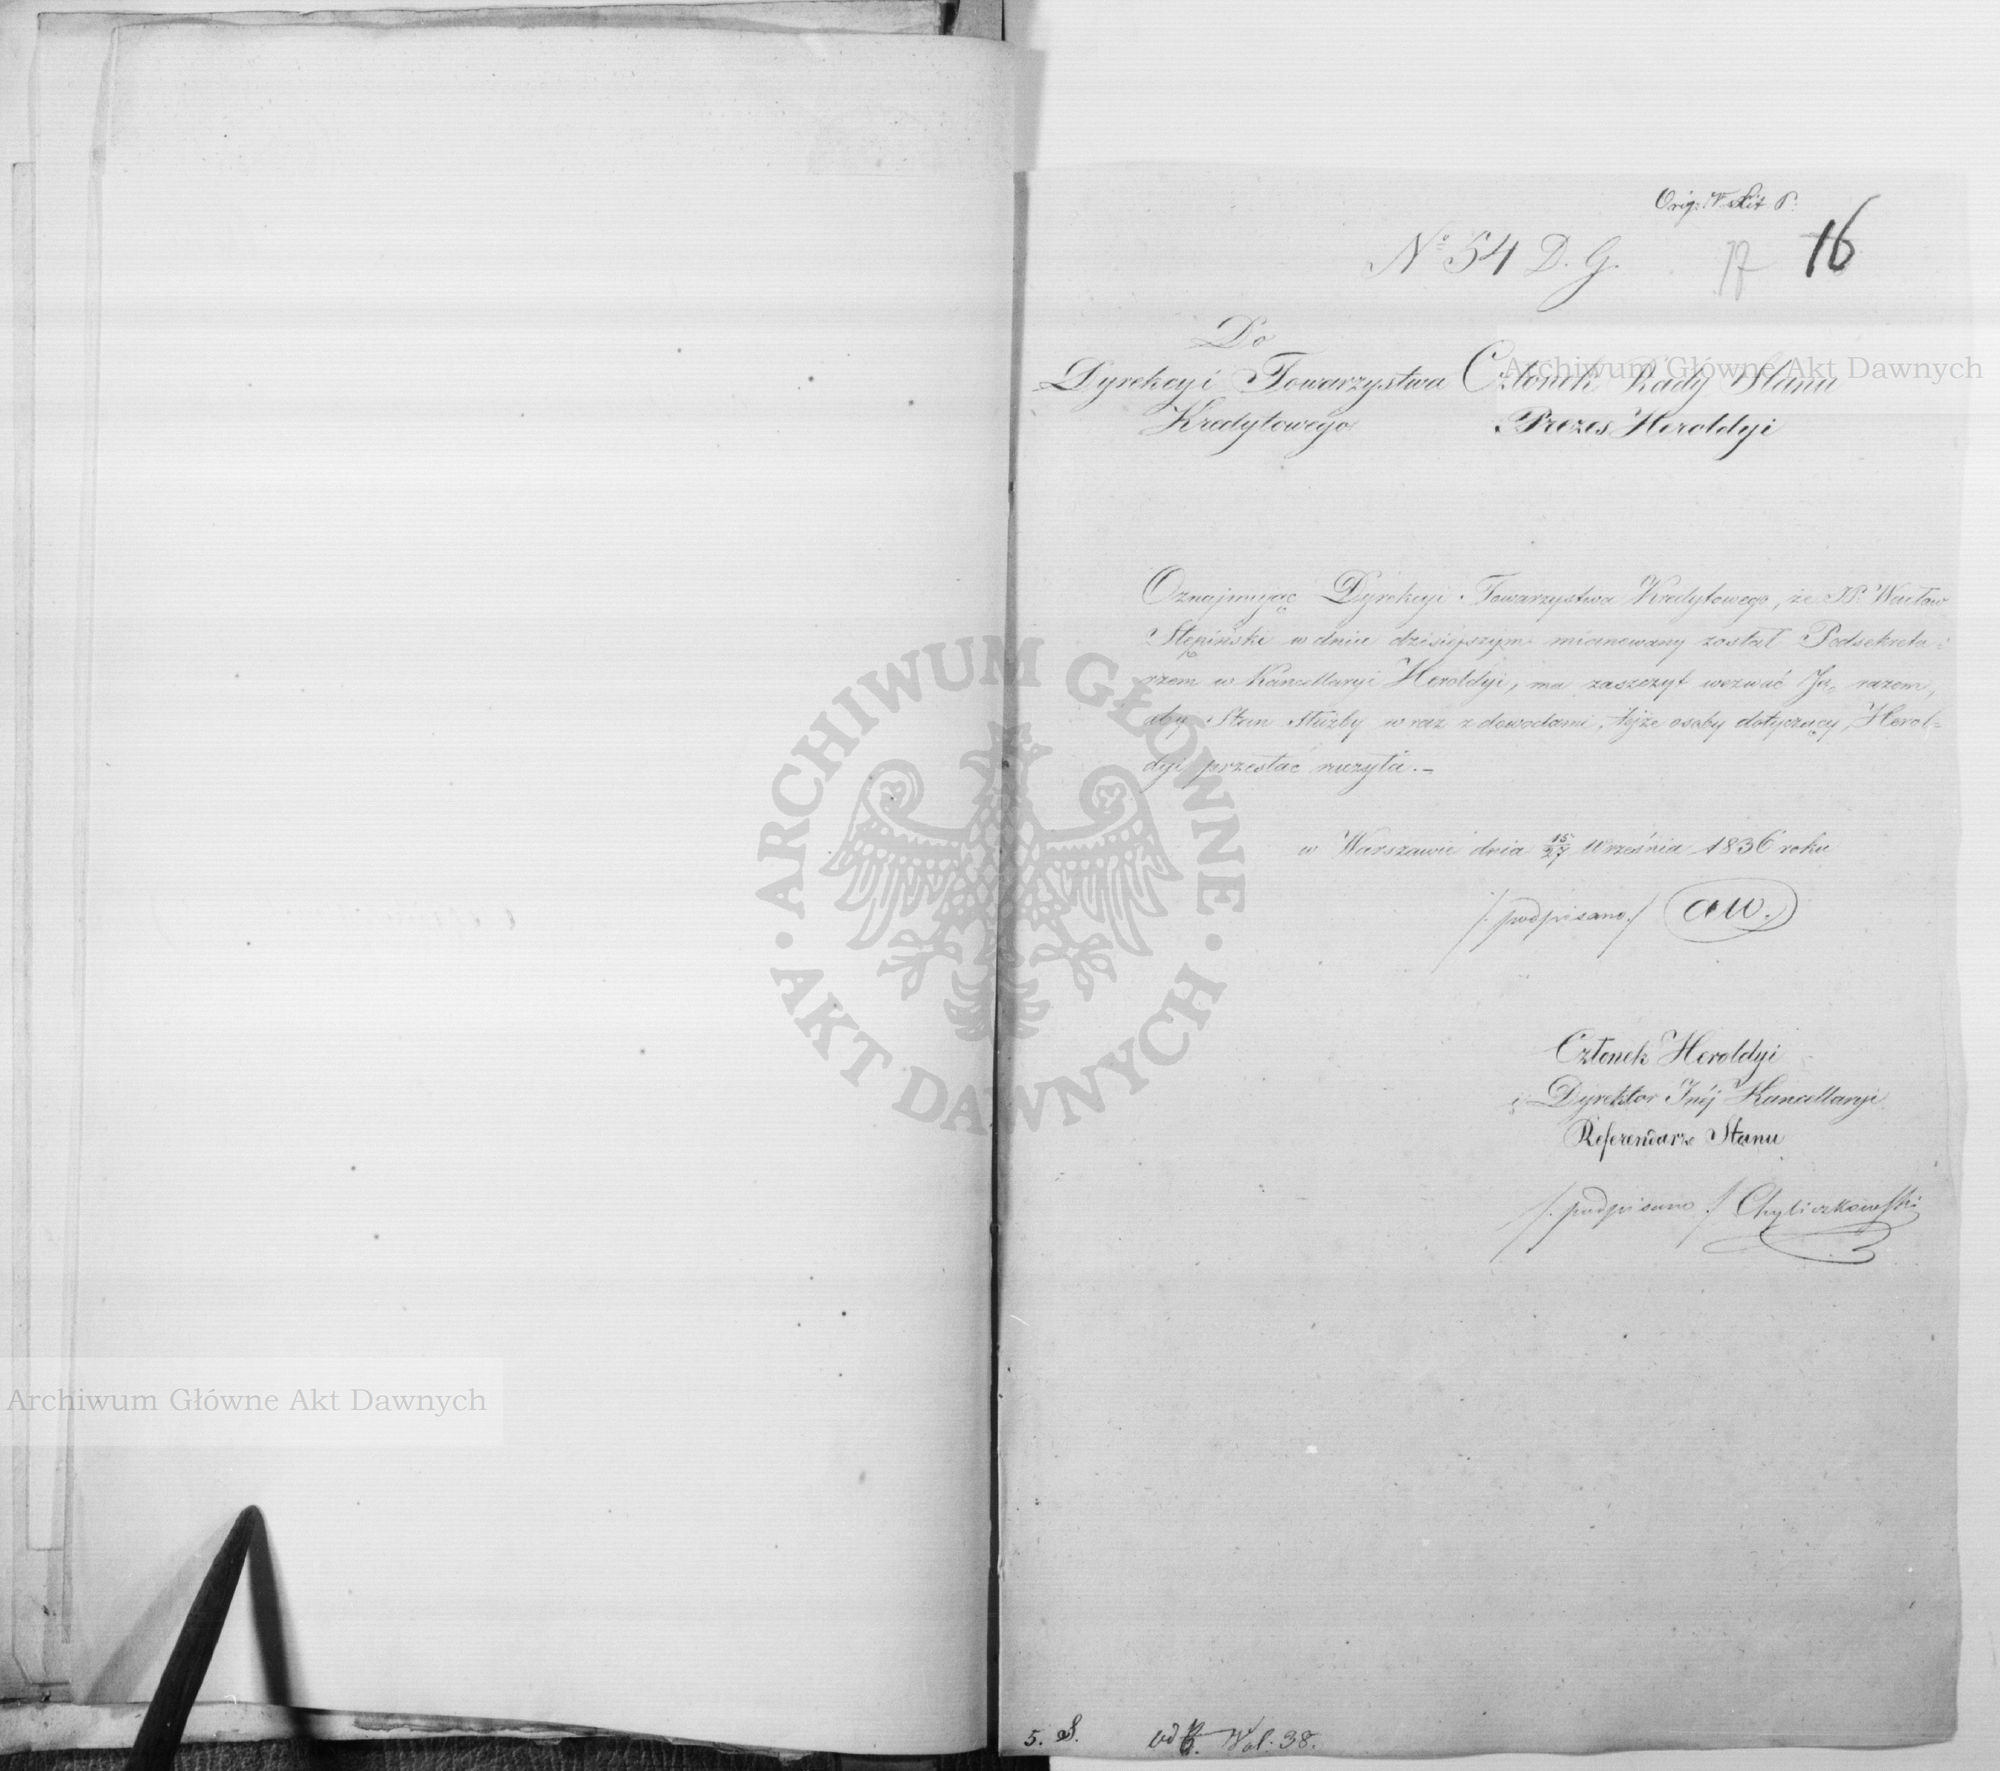 Orig: W Lit P:
No 54 D. G.
17
16
Do
Dyrekcyi Towarzystwa
Kredytowego
Członek Rady Stanu
Prezes Heroldyi
Archiwum Główne Akt Dawnych
Oznajmując Dyrekcyi Towarzystwa Kredytowego, że JP. Wacław
Stępiński w dniu dzisiejszym mianowany został Podsekreta:
rzem w Kancellaryi Heroldyi, ma zaszczyt wezwać Ją, razem,
aby Stan Służby wraz z dowodami, tejże osoby dotyczący, Herol=
dyi przesłać raczyła.–
w Warszawie dnia 15/27 Września 1836 roku
/: podpisano :/ AW.
Członek Heroldyi
i Dyrektor Jnéj Kancellaryi
Referendarz Stanu
/: podpisano :/ Chyliczkowski
ARCHIWUM GŁÓWNE
AKT DAWNYCH
Archiwum Główne Akt Dawnych
5. S. Vol: 38.